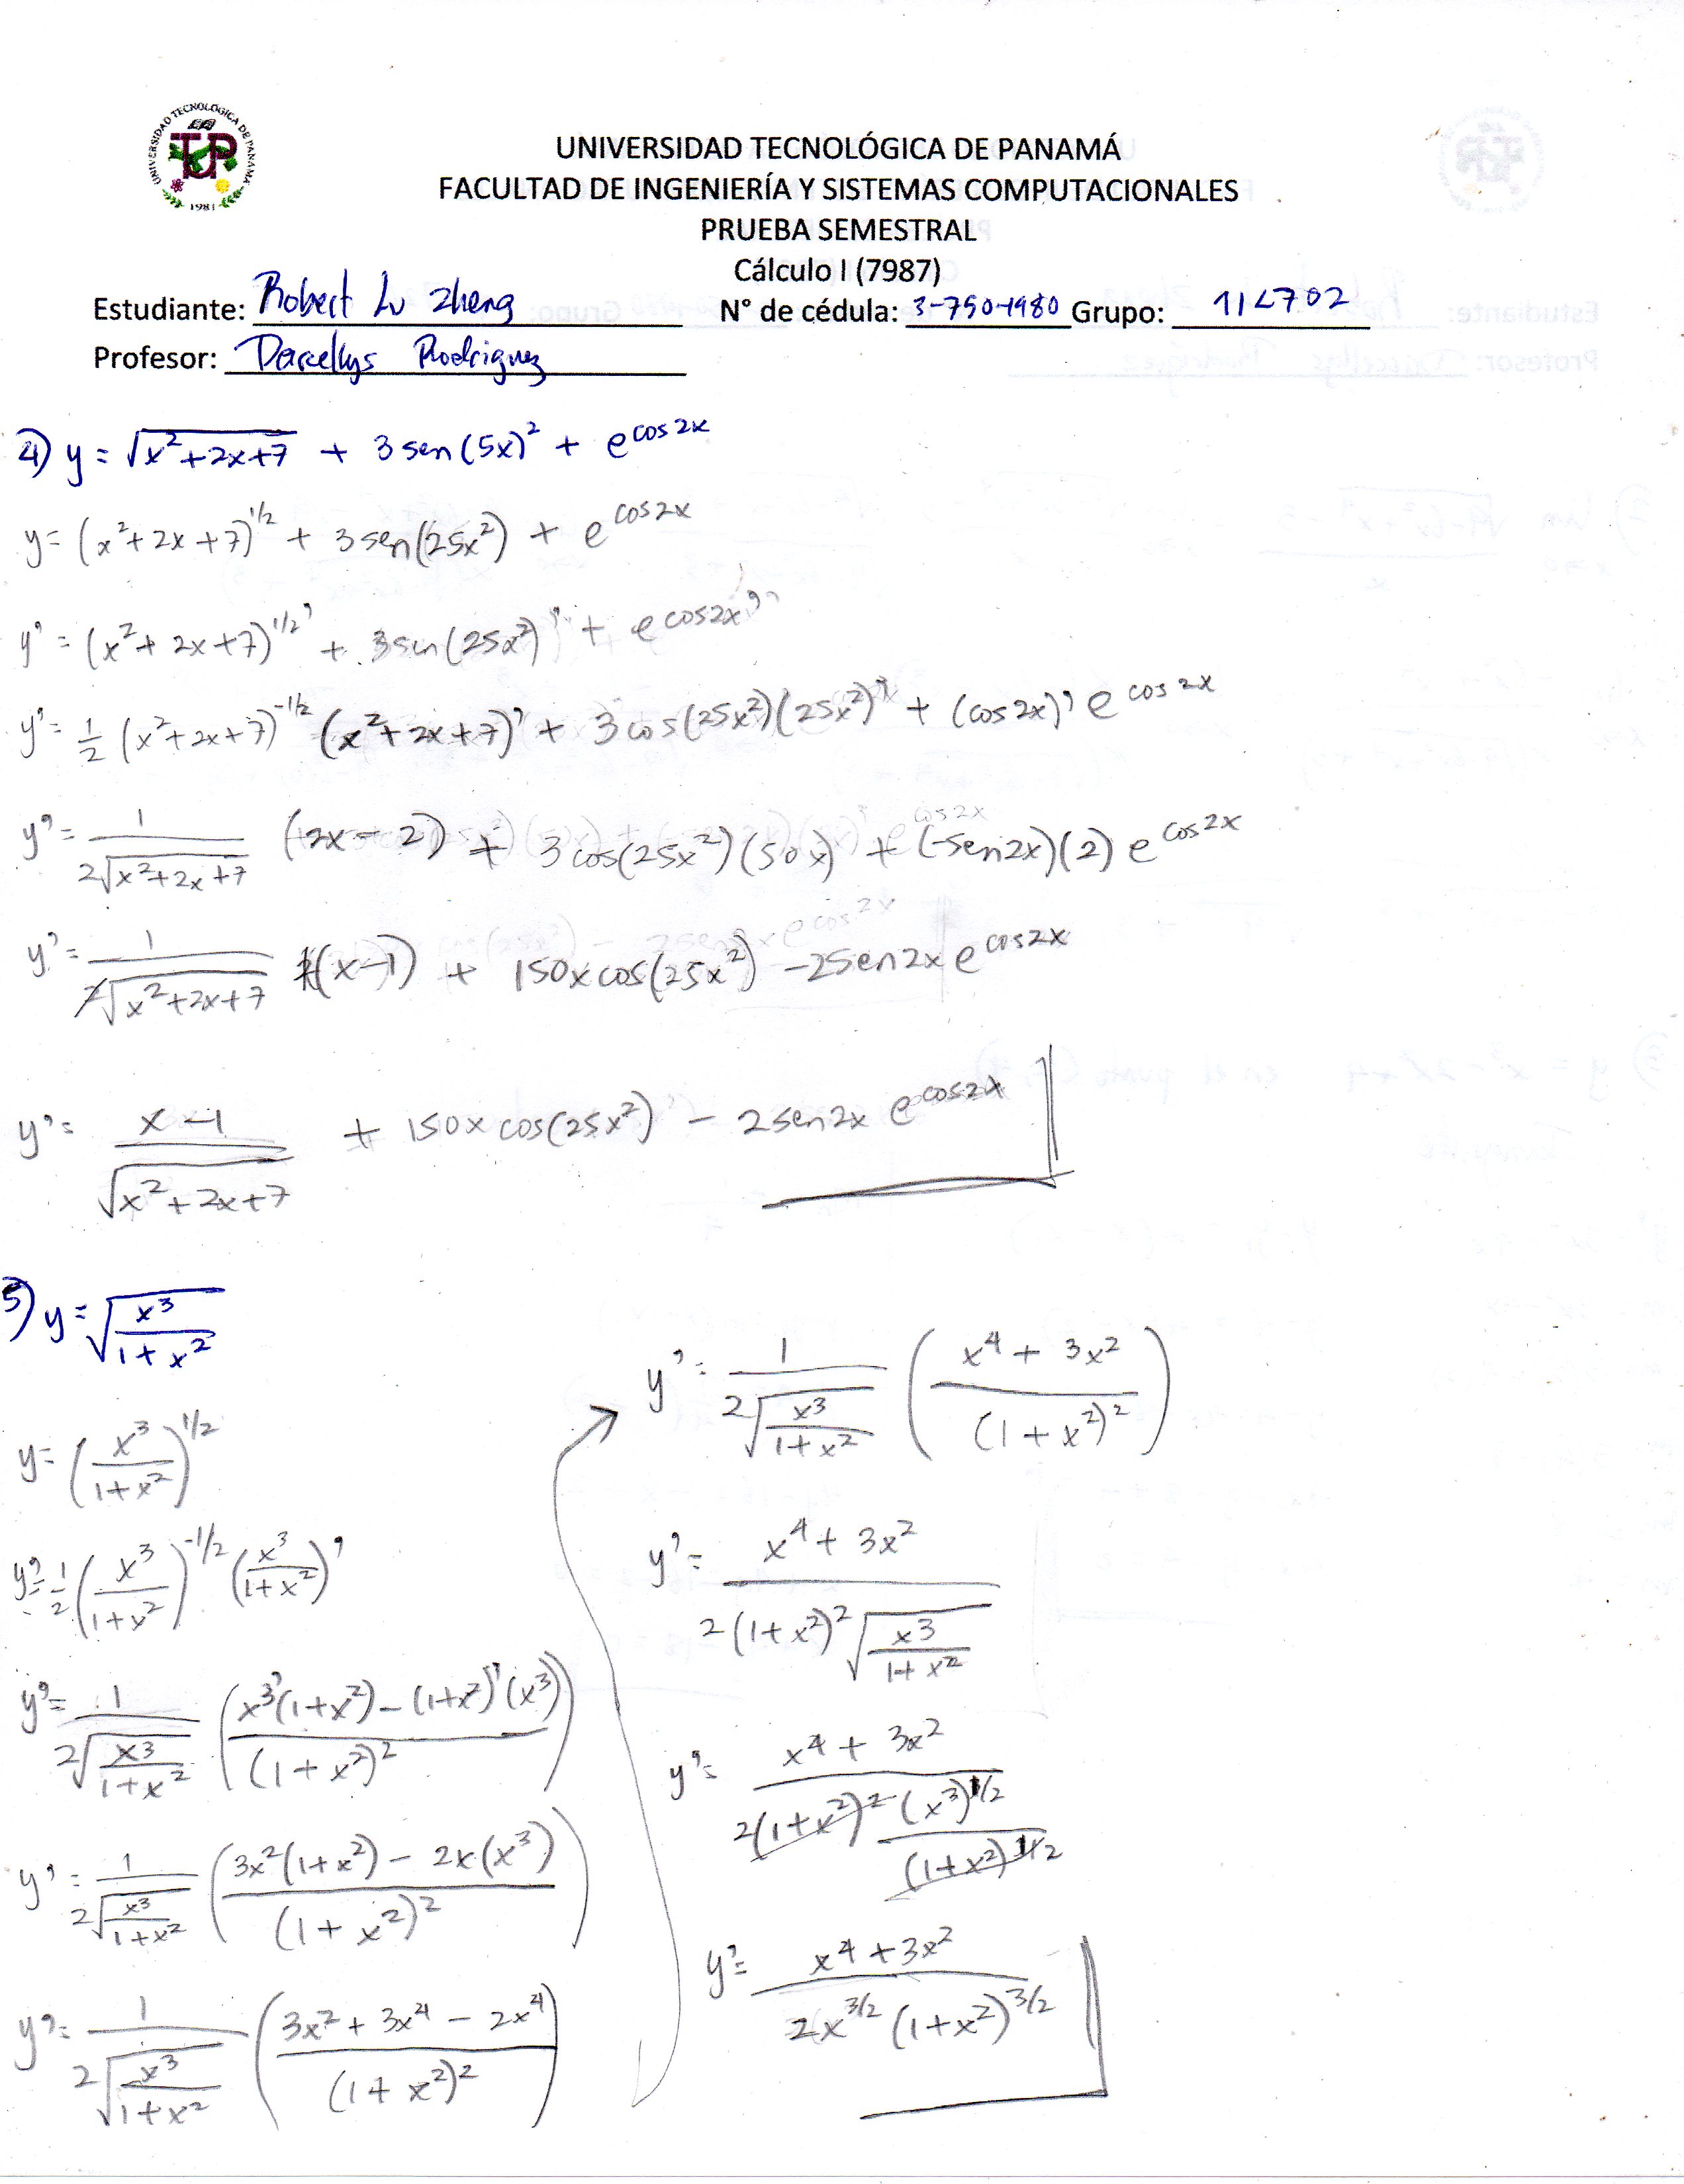 UNIVERSIDAD TECNOLÓGICA DE PANAMÁ
1981
UNIVERSIDAD TECNOLÓGICA DE PANAMÁ
FACULTAD DE INGENIERÍA Y SISTEMAS COMPUTACIONALES
PRUEBA SEMESTRAL
Cálculo I (7987)
Estudiante: Robert Lu Zheng N° de cédula: 3-750-1980 Grupo: 1IL702
Profesor: Darcellys Rodriguez
4) y = √(x²+2x+7) + 3 sen(5x)² + e^(cos 2x)
y = (x²+2x+7)^(1/2) + 3 sen(25x²) + e^(cos2x)
y' = (x²+2x+7)^(1/2)' + 3 sen(25x²)' + e^(cos2x)'
y' = 1/2 (x²+2x+7)^(-1/2) (x²+2x+7)' + 3 cos(25x²)(25x²)' + (cos2x)' e^(cos 2x)
y' = 1/(2√(x²+2x+7)) (2x-2) + 3 cos(25x²)(50x) + (-sen2x)(2) e^(cos2x)
y' = 1/(2√(x²+2x+7)) 2(x-1) + 150x cos(25x²) - 2sen2x e^(cos2x)
y' = (x-1)/√(x²+2x+7) + 150x cos(25x²) - 2sen2x e^(cos2x)
5) y = √(x³/(1+x²))
y = (x³/(1+x²))^(1/2)
y' = 1/2 (x³/(1+x²))^(-1/2) (x³/(1+x²))'
y' = 1/(2√(x³/(1+x²))) ((x³'(1+x²) - (1+x²)'(x³))/(1+x²)²)
y' = 1/(2√(x³/(1+x²))) ((3x²(1+x²) - 2x(x³))/(1+x²)²)
y' = 1/(2√(x³/(1+x²))) ((3x²+3x⁴-2x⁴)/(1+x²)²)
y' = 1/(2√(x³/(1+x²))) ((x⁴+3x²)/(1+x²)²)
y' = (x⁴+3x²)/(2(1+x²)²√(x³/(1+x²)))
y' = (x⁴+3x²)/(2(1+x²)² (x³)^(1/2)/(1+x²)^(1/2))
y' = (x⁴+3x²)/(2x^(3/2) (1+x²)^(3/2))